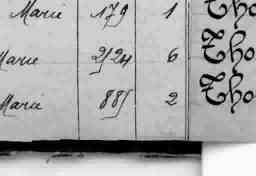 Marie 179 1 Tho
Marie 2/24 6 Tho
Marie 885 2 Tho